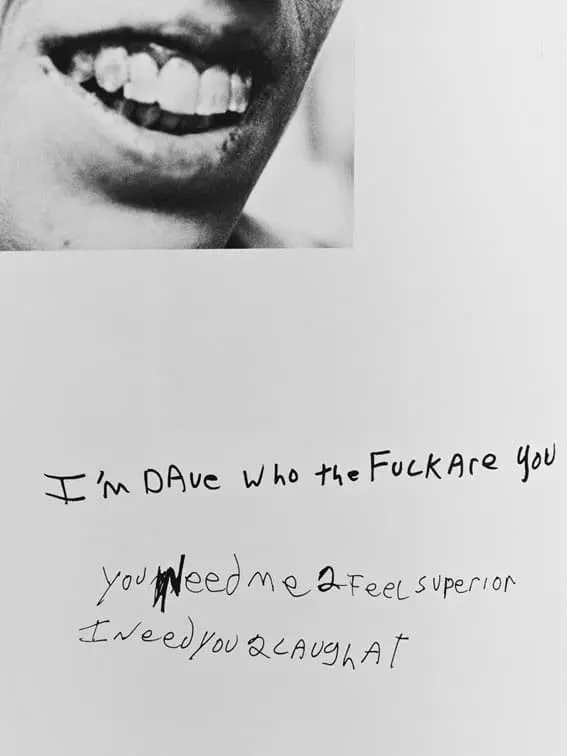 I'm DAve who the Fuck Are you
you Need me 2 Feel superior
I Need you 2 LAugh At